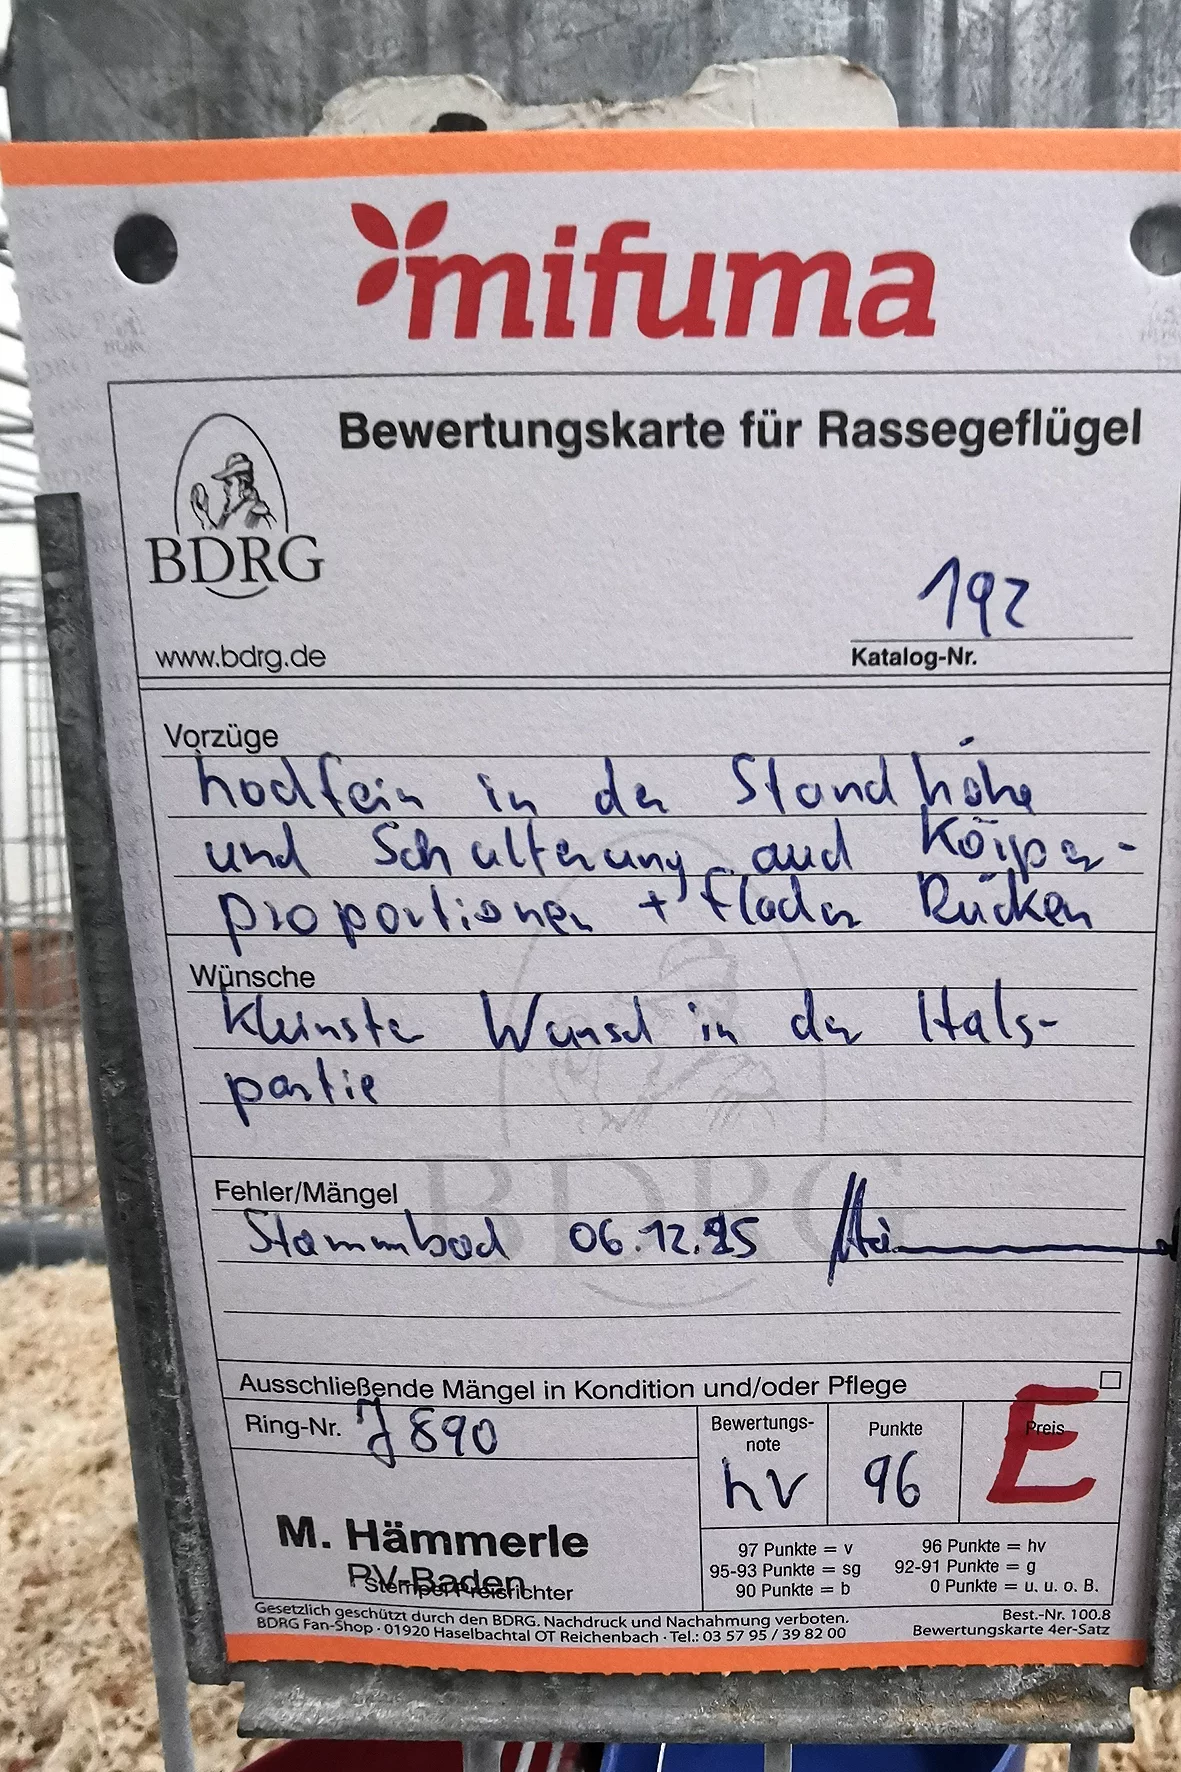 mifuma
Bewertungskarte für Rassegeflügel
BDRG
www.bdrg.de
192
Katalog-Nr.
Vorzüge
hochfein in der Standhöhe
und Schulterung auch Körper-
proportionen + flacher Rücken
Wünsche
kleinster Wunsch in der Hals-
partie
Fehler/Mängel
Stammbach 06.12.25
Ausschließende Mängel in Kondition und/oder Pflege
Ring-Nr. J 890
Bewertungs-
note
hv
Punkte
96
Preis
E
M. Hämmerle
PV-Baden
Stempel Preisrichter
97 Punkte = v 96 Punkte = hv
95-93 Punkte = sg 92-91 Punkte = g
90 Punkte = b 0 Punkte = u. u. o. B.
Gesetzlich geschützt durch den BDRG. Nachdruck und Nachahmung verboten.
BDRG Fan-Shop · 01920 Haselbachtal OT Reichenbach · Tel.: 03 57 95 / 39 82 00
Best.-Nr. 100.8
Bewertungskarte 4er-Satz